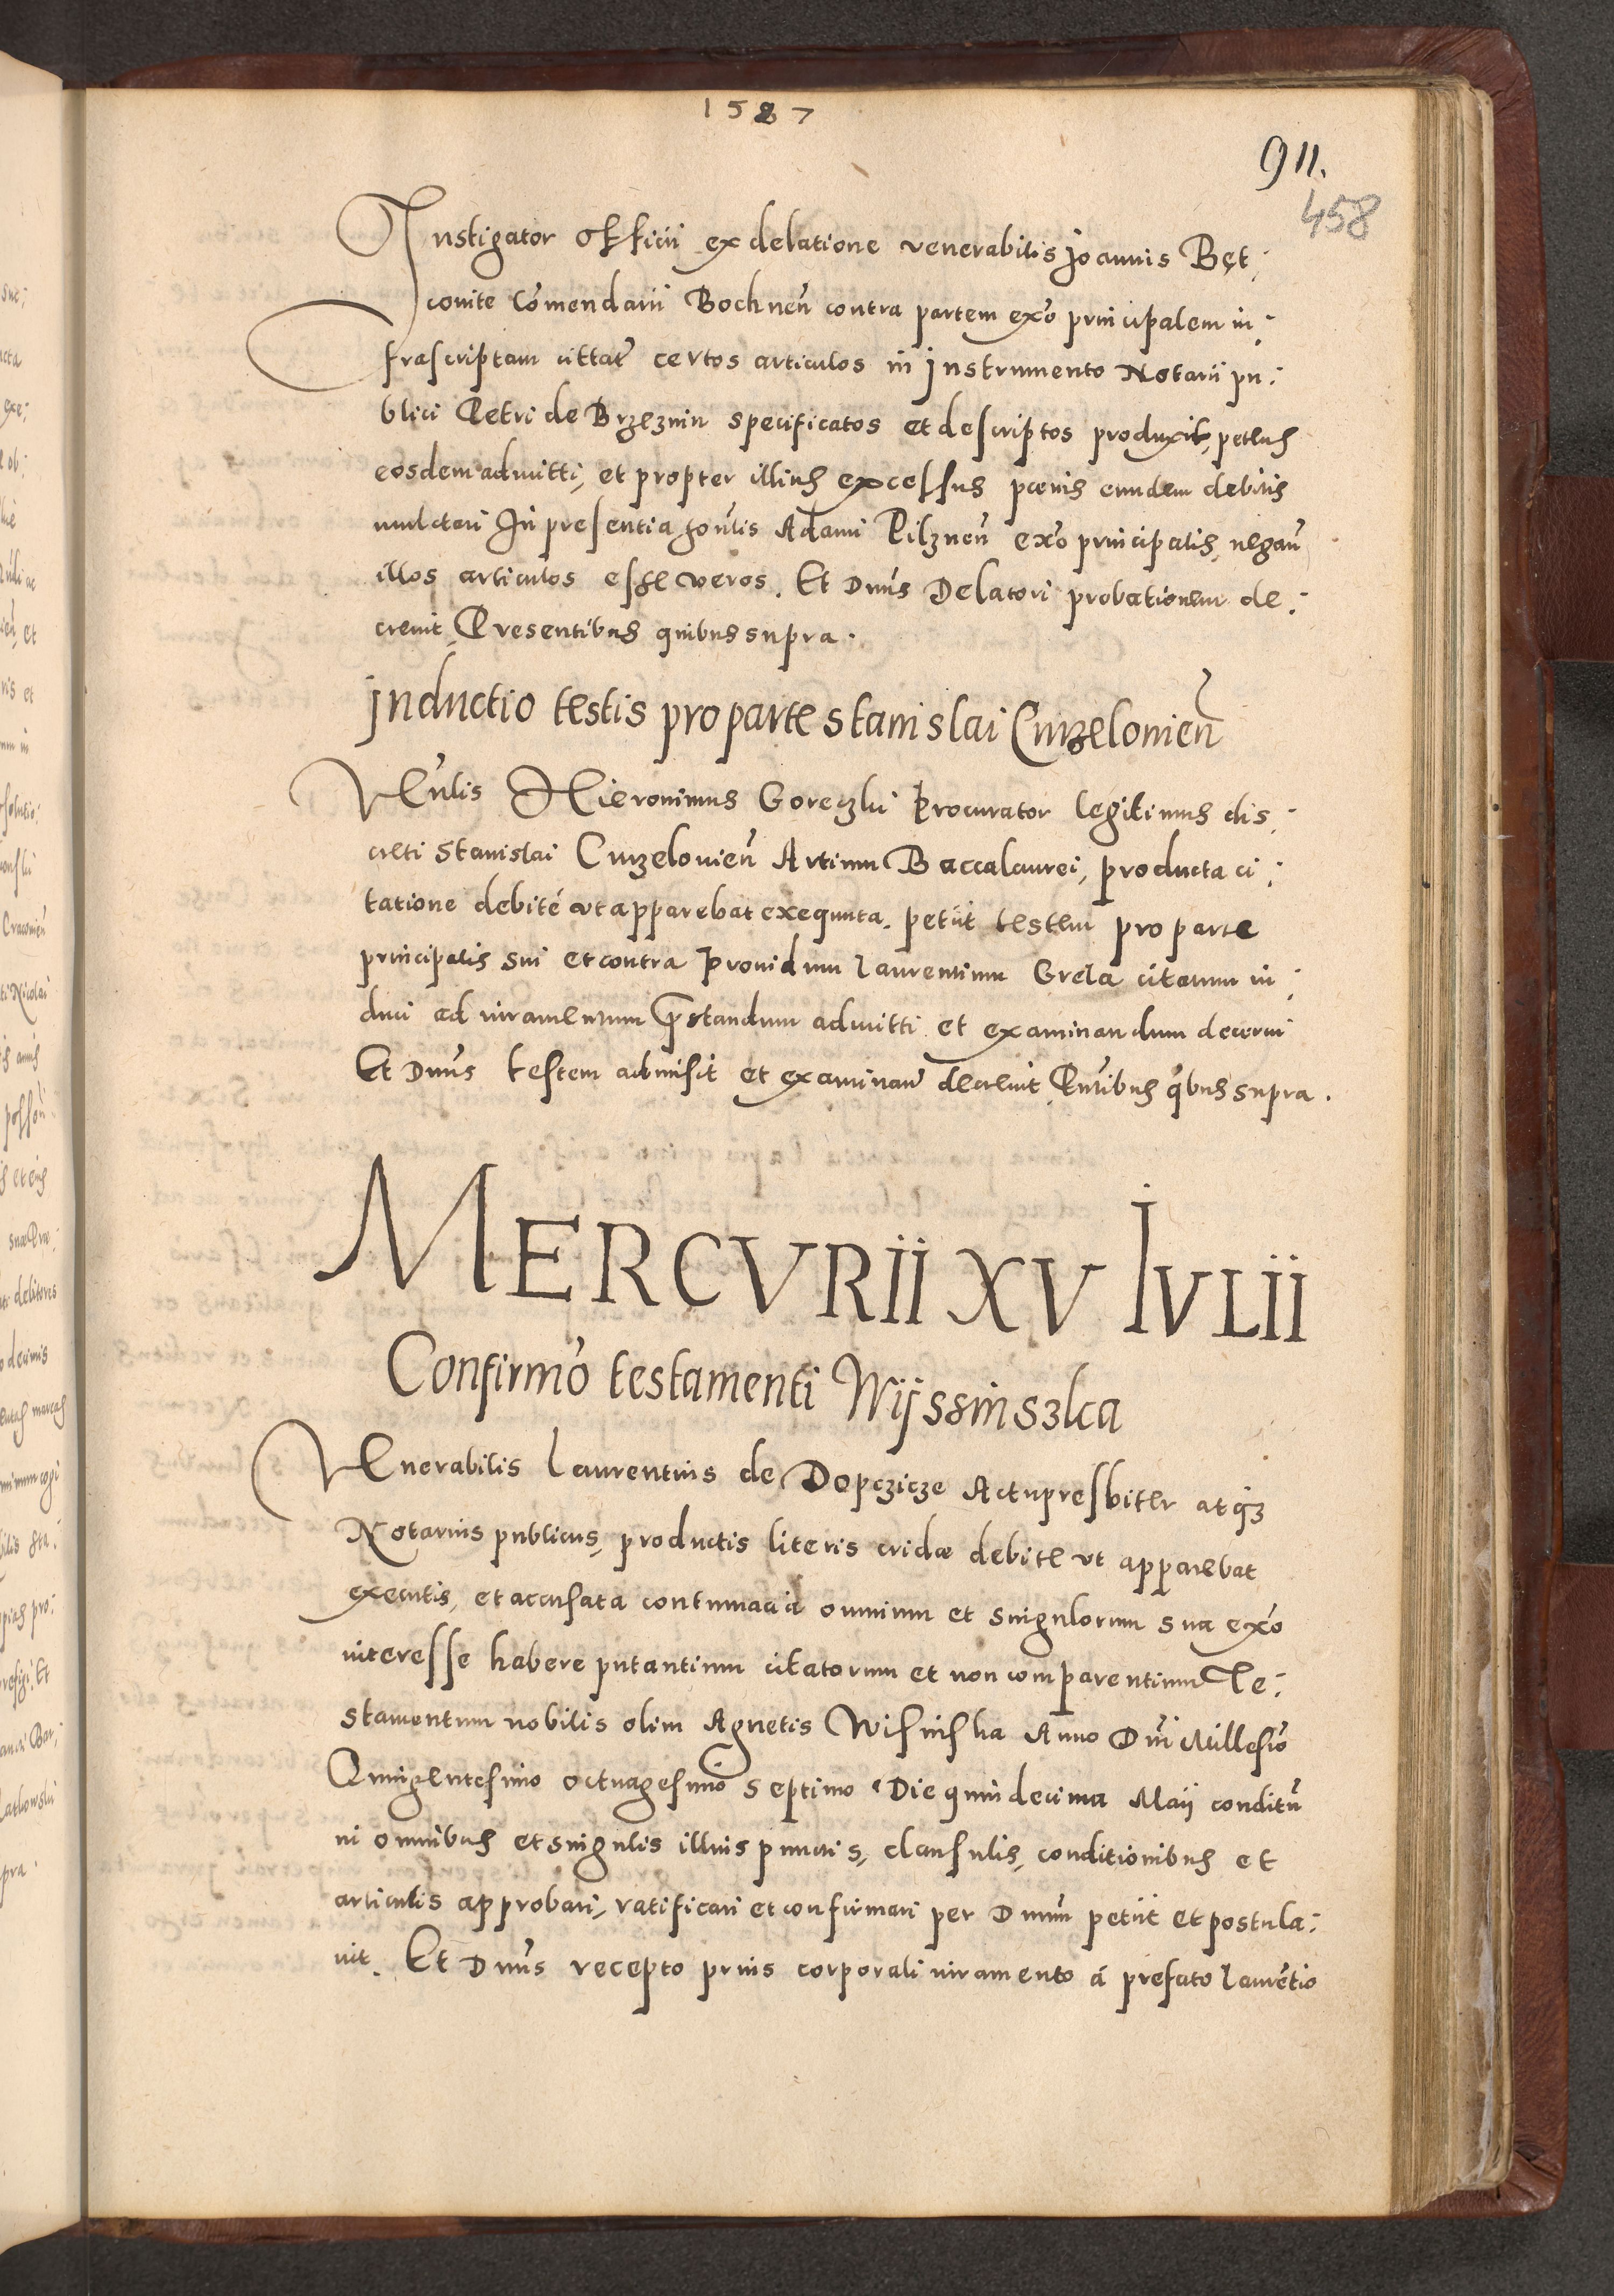 1587
911.
458
Instigator officii ex delatione venerabilis Joannis Bęt:
conite Com̃endarii Bochneñ contra partem ex̃o principalem in:
frascriptam cittat̃ certos articulos in Instrumento Notarii pu:
blici Petri de Brzeznin specificatos et descriptos produxit, petens
eosdem admitti, et propter illius excessus poenis eundem debitis
mulctari In presentia hoñlis Adami Pilzneñ ex̃o principalis, negañ
illos articulos esse veros. Et Dnũs Delatori probationem de:
crevit, Presentibus quibus supra.
Inductio testis pro parte Stanislai Curzelonieñ
Veñlis Hieronimus Goreczki Procurator legitimus dis:
creti Stanislai Curzelovieñ Artium Baccalaurei, producta ci:
tatione debité ut apparebat exequuta. petiit testem pro parte
principalis sui et contra Providum Laurentium Grela citatum in:
duci ad iuramentum prestandum admitti et examinandum decerni
Et Dnũs testem admisit et examinañ decrevit, Pñtibus q̃bus supra.
MERCVRII XV IVLII
Confirmõ testamenti Wijssinszka
Venerabilis Laurentius de Dopczicze Actupresbiter atq̃
Notarius publicus, productis literis cridæ debite ut apparebat
executis, et accusata contumacia omnium et singulorum sua ex̃o
interesse habere putantium citatorum et non comparentium Te:
stamentum nobilis olim Agnetis Wisinska Anno Dñi Millesiõ
Quingentesimo octuagesimo septimo Die quindecima Maij conditũ
in omnibus et singulis illius punctis, clausulis, conditionibus et
articulis approbari, ratificari et confirmari per Dnũm petiit et postula:
vit. Et Dnũs recepto prius corporali iuramento á prefato Laurẽtio